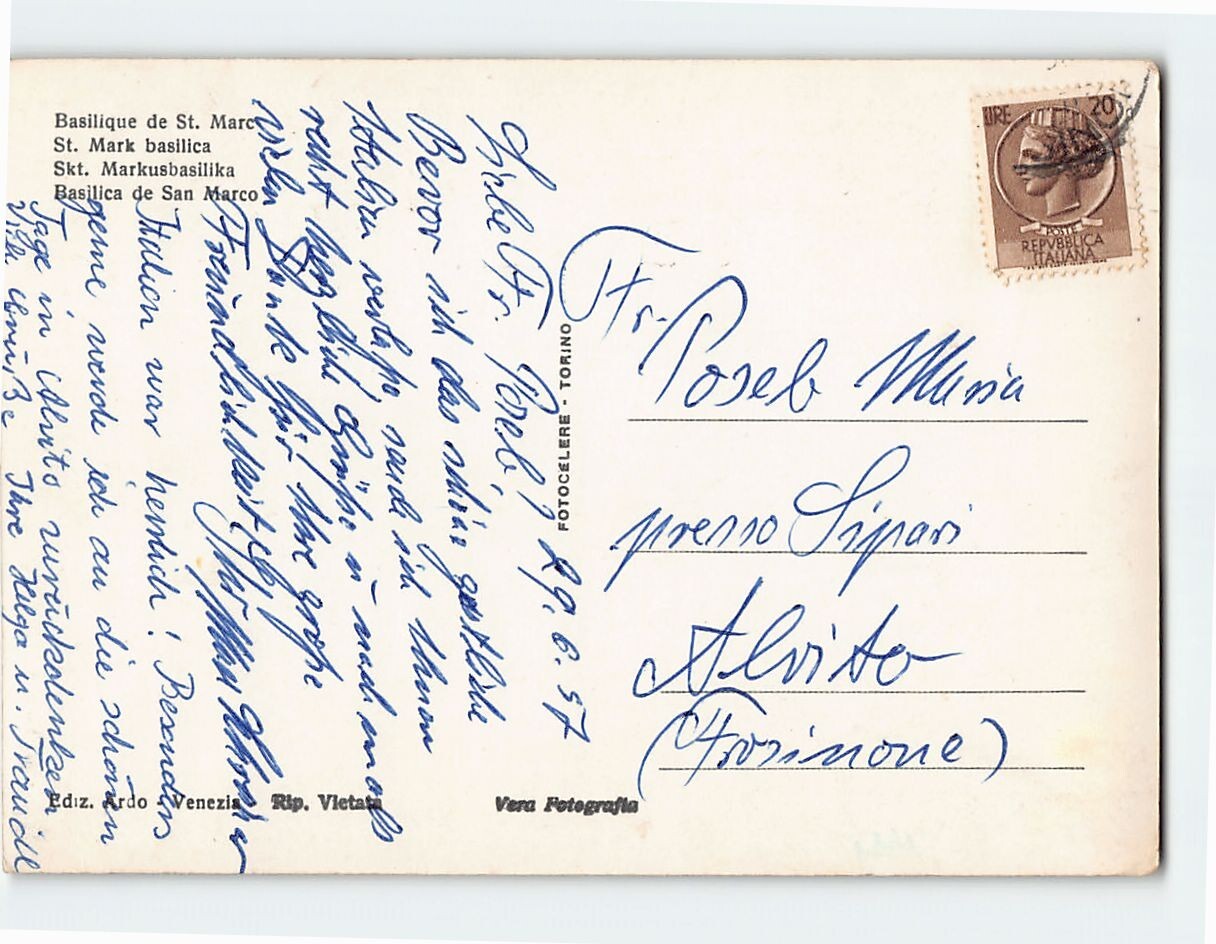 Basilique de St. Marc
St. Mark basilica
Skt. Markusbasilika
Basilica de San Marco
LIRE 20
POSTE
REPVBBLICA
ITALIANA
29. 6. 57
Liebe Fr. Poseb!
Bevor ich das schöne gastliche
Italien verlasse sende ich Ihnen
recht herzliche Grüße u. nochmals
vielen Danke für Ihre große
Freundlichkeit. Ihr
Italien war herrlich! Besonders
gerne werde ich an die schönen
Tage in Alvito zurückdenken
Viele Grüße Ihre Helga u. Traudl
FOTOCELERE - TORINO
Fr. Poseb Maria
presso Sipari
Alvito
(Frosinone)
Ediz. Ardo Venezia Rip. Vietata
Vera Fotografia